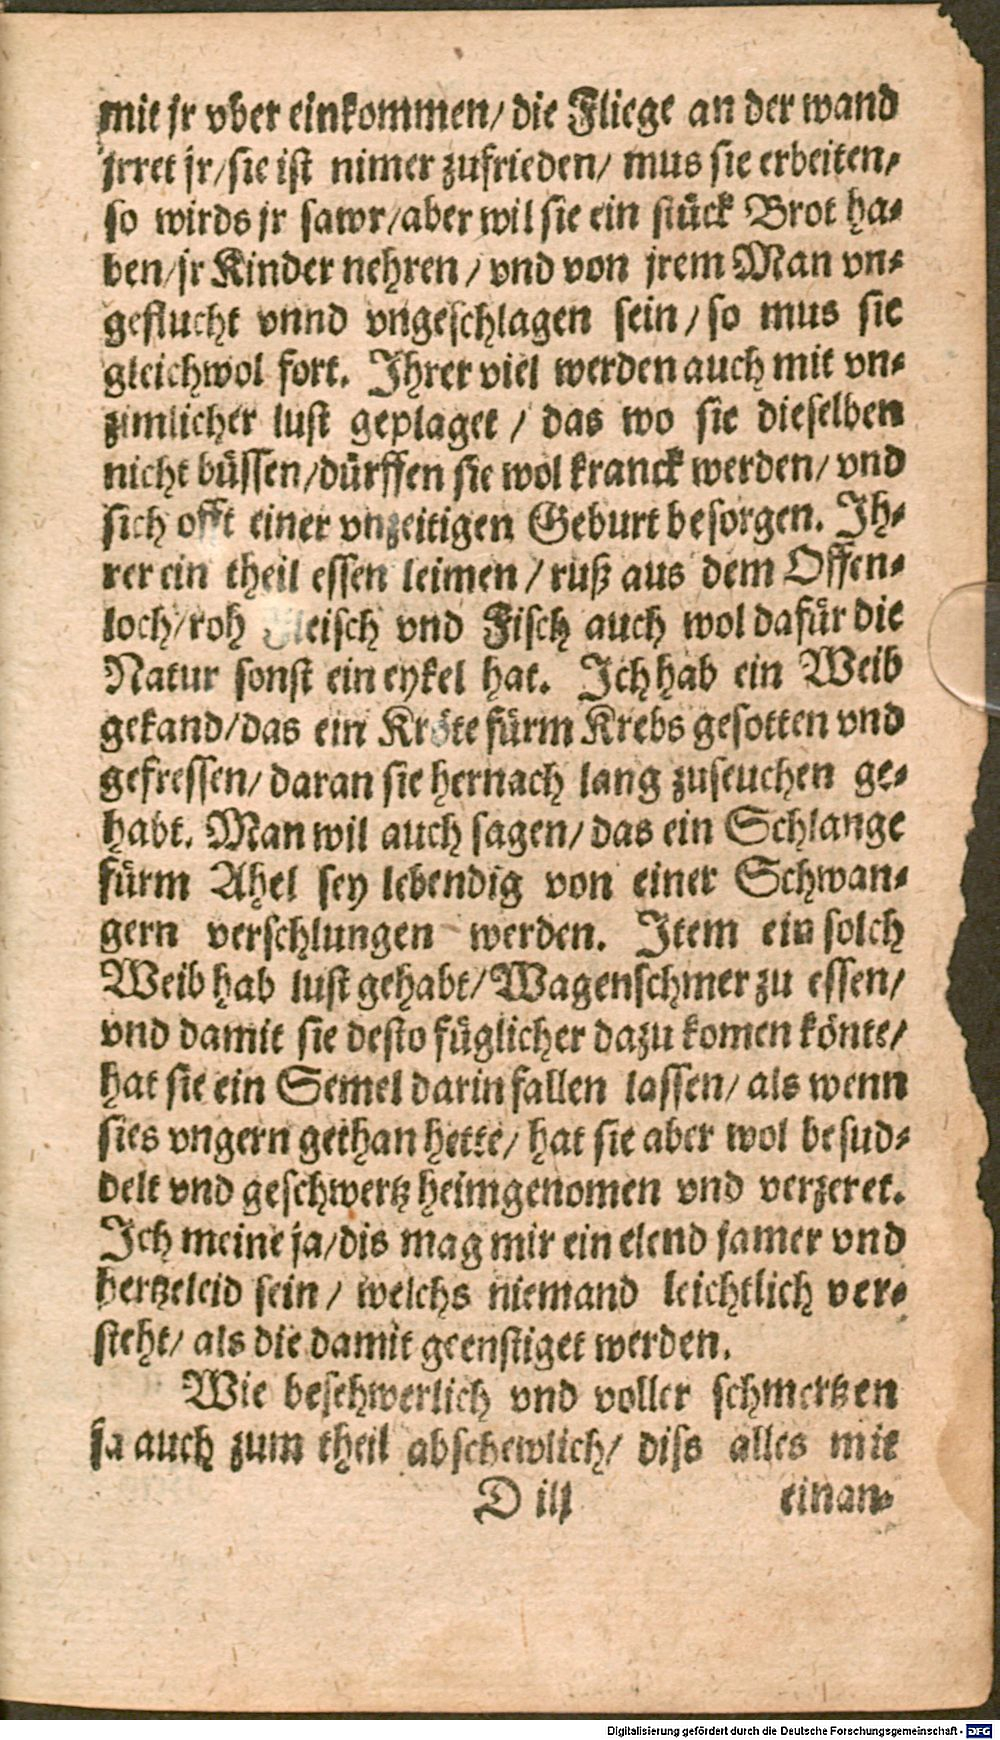 mit jr vber einkommen/ die Fliege an der wand
jrret jr/ sie ist nimer zufrieden/ mus sie erbeiten/
so wirds jr sawr/ aber wil sie ein stück Brot ha-
ben/ jr Kinder nehren/ vnd von jrem Man vn-
geflucht vnnd vngeschlagen sein/ so mus sie
gleichwol fort. Ihrer viel werden auch mit vn-
zimlicher lust geplaget/ das wo sie dieselben
nicht büssen/ dürffen sie wol kranck werden/ vnd
sich offt einer vnzeitigen Geburt besorgen. Ih-
rer ein theil essen leimen/ ruß aus dem Offen-
loch/ roh Fleisch vnd Fisch auch wol dafür die
Natur sonst ein eykel hat. Ich hab ein Weib
gekand/ das ein Kröte fürm Krebs gesotten vnd
gefressen/ daran sie hernach lang zuseuchen ge-
habt. Man wil auch sagen/ das ein Schlange
fürm Ahel sey lebendig von einer Schwan-
gern verschlungen werden. Item ein solch
Weib hab lust gehabt/ Wagenschmer zu essen/
vnd damit sie desto füglicher dazu komen könte/
hat sie ein Semel darin fallen lassen/ als wenn
sies vngern gethan hette/ hat sie aber wol besud-
delt vnd geschwertz heimgenomen vnd verzeret.
Ich meine ja/ dis mag mir ein elend jamer vnd
hertzeleid sein/ welchs niemand leichtlich ver-
steht/ als die damit geenstiget werden.
Wie beschwerlich vnd voller schmertzen
ja auch zum theil abschewlich/ diss alles mit
D iij
einan-
Digitalisierung gefördert durch die Deutsche Forschungsgemeinschaft - DFG